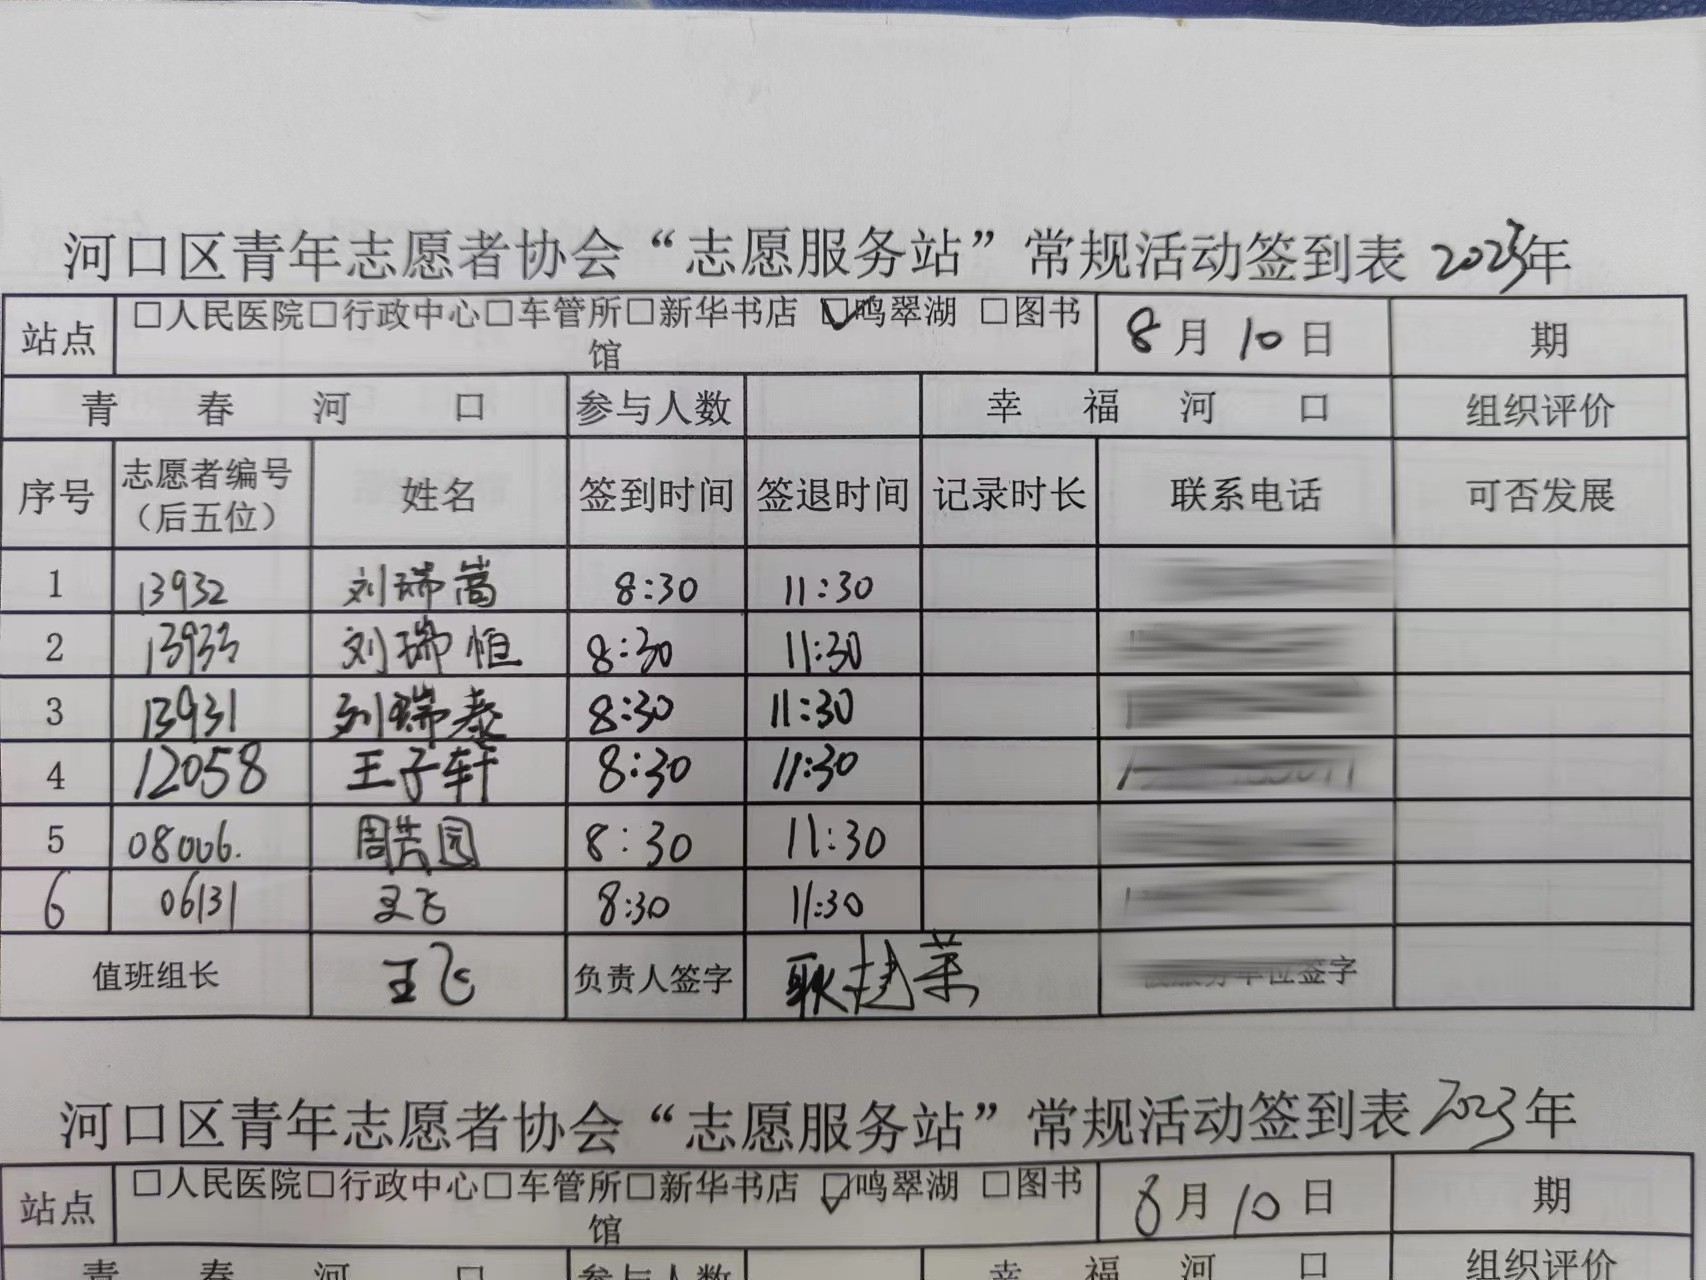 河口区青年志愿者协会“志愿服务站”常规活动签到表 2023年
站点 □人民医院□行政中心□车管所□新华书店 ☑鸣翠湖 □图书馆 8月10日 期
青春河口 参与人数 幸福河口 组织评价
序号 志愿者编号（后五位） 姓名 签到时间 签退时间 记录时长 联系电话 可否发展
1 13932 刘瑞嵩 8:30 11:30
2 13933 刘瑞恒 8:30 11:30
3 13931 刘瑞泰 8:30 11:30
4 12058 王子轩 8:30 11:30
5 08006. 周芸园 8:30 11:30
6 06131 王飞 8:30 11:30
值班组长 王飞 负责人签字 耿建荣 位签字
河口区青年志愿者协会“志愿服务站”常规活动签到表 2023年
站点 □人民医院□行政中心□车管所□新华书店 ☑鸣翠湖 □图书馆 8月10日 期
青春河口 参与人数 幸福河口 组织评价